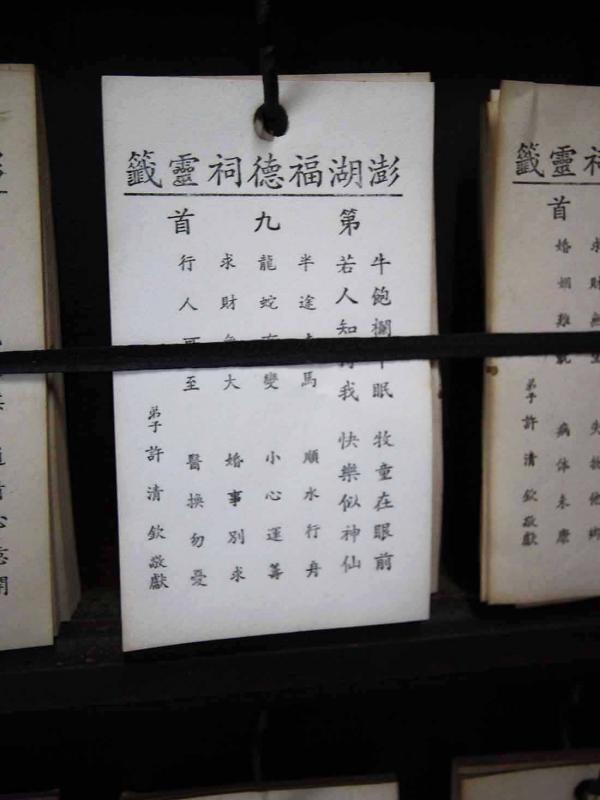 澎湖福德祠靈籤
第九首
牛飽欄中眠 牧童在眼前
若人知得我 快樂似神仙
半途馬 順水行舟
龍蛇變 小心運籌
求財大 婚事別求
行人可至 醫換勿憂
弟子許清欽敬獻
靈籤
首
求財 失物他鄉
婚姻難 病体未康
弟子許清欽敬獻